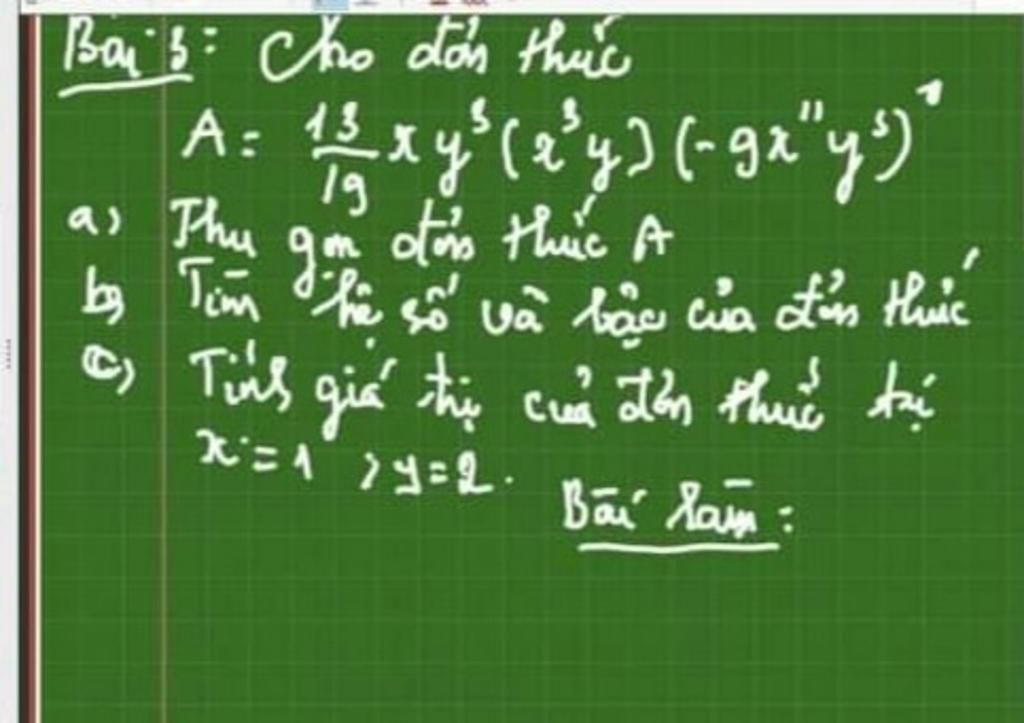 Bài 3: Cho đơn thức
A = 13/19 x y³ (x³y) (-9x¹¹y³)
a) Thu gọn đơn thức A
b) Tìm hệ số và bậc của đơn thức
c) Tính giá trị của đơn thức tại
x = 1 ; y = 2.
Bài làm: